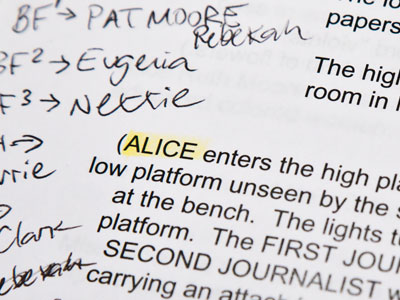 BF¹ → PAT MOORE
Rebekah
BF² → Eugeria
F³ → Nettie
rrie
Clark
Rebekah
papers
The high
room in
(ALICE enters the high pla
low platform unseen by the s
at the bench. The lights t
platform. The FIRST JOUR
SECOND JOURNALIST w
carrying an attach